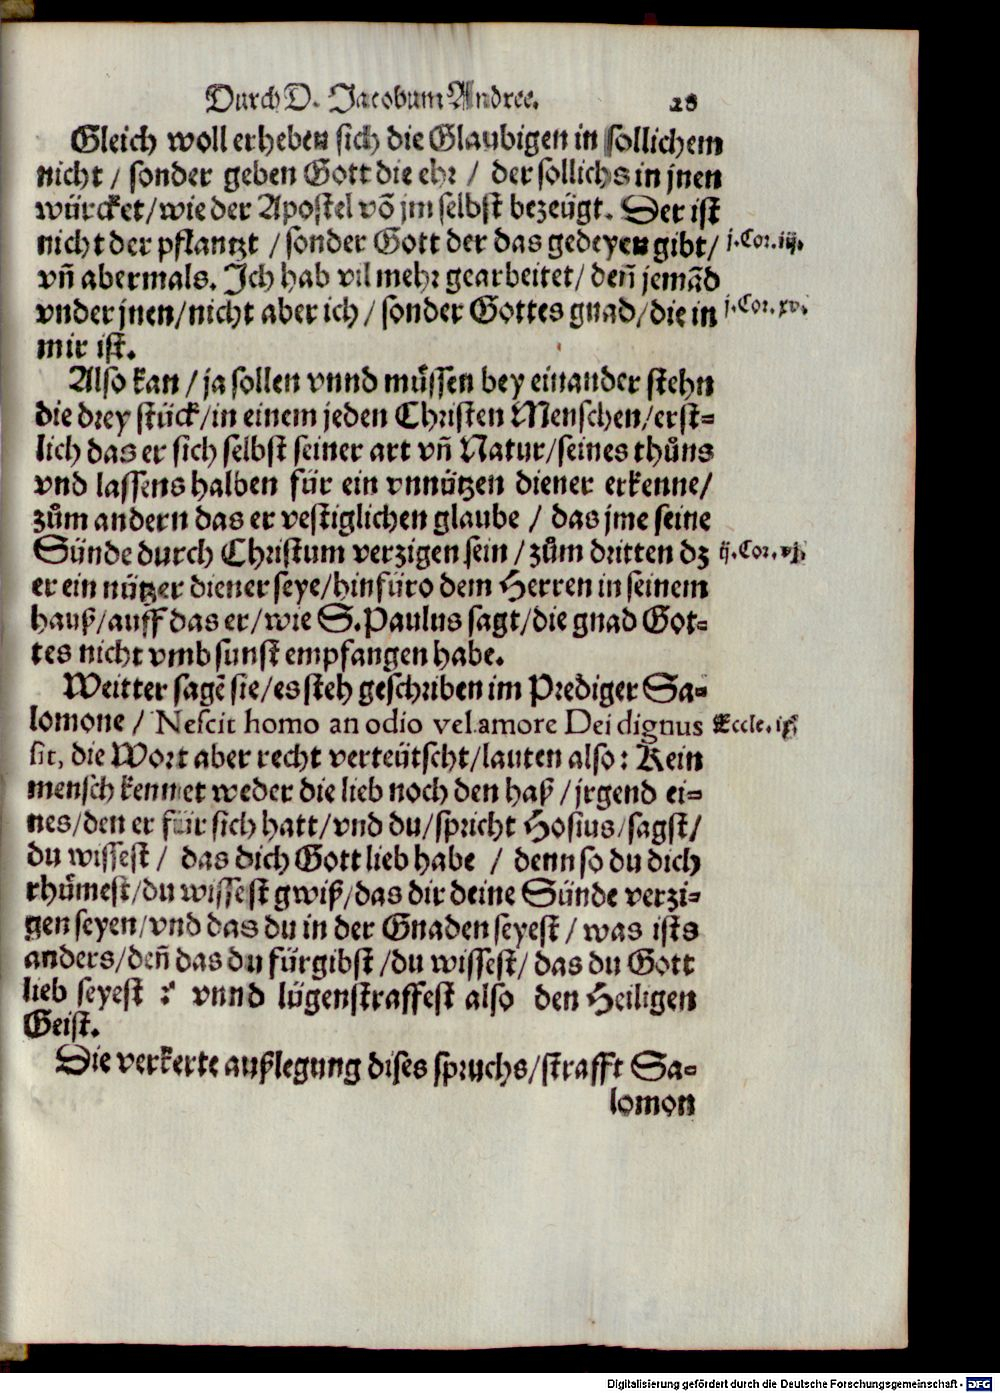 Durch D. Jacobum Andree. 28
Gleich woll erheben sich die Glaubigen in sollichem
nicht / sonder geben Gott die ehr / der sollichs in jnen
würcket/wie der Apostel võ jm selbst bezeügt. Der ist
nicht der pflantzt /sonder Gott der das gedeyen gibt/ j.Cor.iij.
vñ abermals. Ich hab vil mehr gearbeitet/ deñ jemãd
vnder jnen/nicht aber ich / sonder Gottes gnad/die in j.Cor.xv.
mir ist.
Also kan / ja sollen vnnd muͤssen bey einander stehn
die drey stück/in einem jeden Christen Menschen/erst-
lich das er sich selbst seiner art vñ Natur/seines thuͦns
vnd lassens halben für ein vnnützen diener erkenne/
zuͦm andern das er vestiglichen glaube / das jme seine
Sünde durch Christum verzigen sein / zuͦm dritten dz ij.Cor.vj.
er ein nützer diener seye/hinfüro dem Herren in seinem
hauß/auff das er/wie S.Paulus sagt/die gnad Got-
tes nicht vmb sunst empfangen habe.
Weitter sagẽ sie/es steh geschriben im Prediger Sa-
lomone / Nescit homo an odio vel amore Dei dignus Eccle.ix
sit, die Wort aber recht verteütscht/lauten also: Kein
mensch kennet weder die lieb noch den haß /jrgend ei-
nes/den er für sich hatt/vnd du/spricht Hosius/sagst/
du wissest / das dich Gott lieb habe / denn so du dich
rhuͤmest/du wissest gwiß/das dir deine Sünde verzi-
gen seyen/vnd das du in der Gnaden seyest / was ists
anders/deñ das du fürgibst /du wissest/ das du Gott
lieb seyest ? vnnd lügenstraffest also den Heiligen
Geist.
Die verkerte außlegung dises spruchs/strafft Sa-
lomon
Digitalisierung gefördert durch die Deutsche Forschungsgemeinschaft - DFG